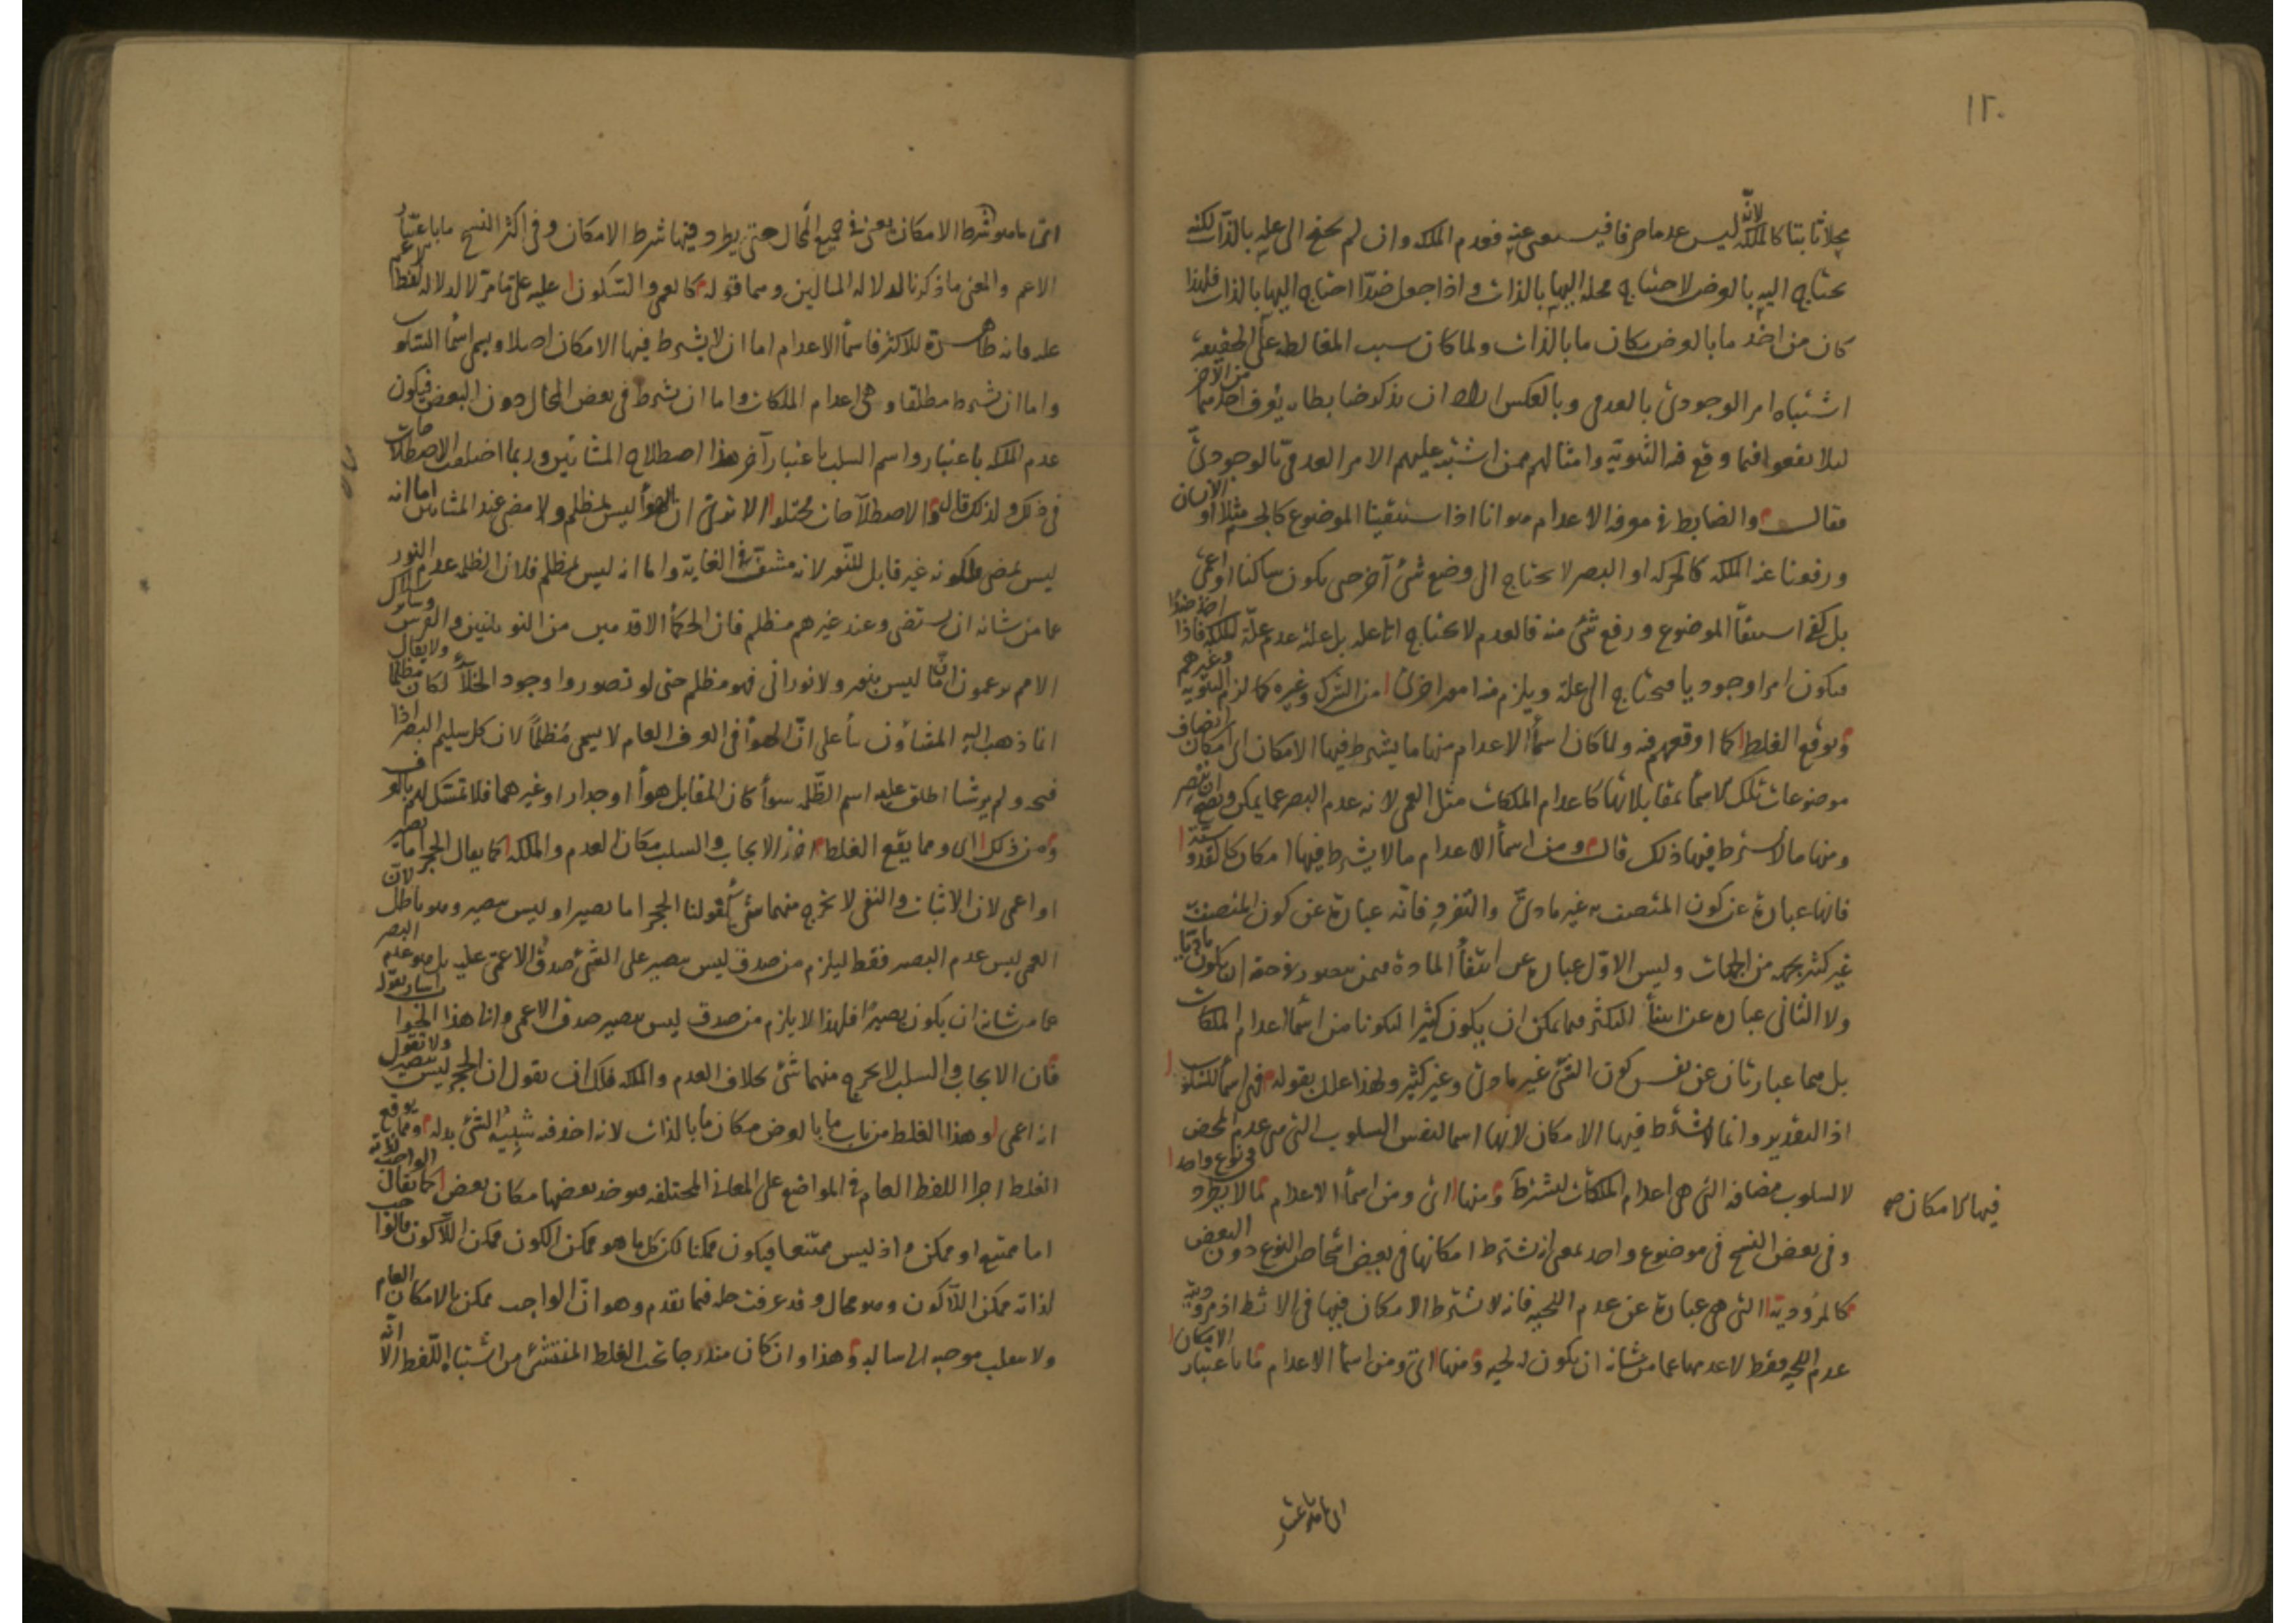 ١٢٠
محلا ثابتا كالملكة لانه ليس عدما صرفا فيستغنى عنه فعدم الملكة وان لم يحتج الى علة بالذات لكنه
يحتاج اليه بالعرض لاحتياج محله اليها بالذات واذا جعل ضدّا احتاج اليها بالذات فلهذا
كان من اخذ ما بالعرض مكان ما بالذات ولما كان سبب المغالطة على الحقيقة
اشتباه امر الوجودى بالعدمى وبالعكس اراد ان يذكر ضابطا به يعرف احدهما من الآخر
لئلا يقعوا فيما وقع فيه الثنوية وامثالهم ممن اشتبه عليهم الامر العدمىّ بالوجودىّ
فقال والضابط فى معرفة الاعدام هو انا اذا استبقينا الموضوع كالجسم مثلا او الانسان
ورفعنا عنه الملكة كالحركة او البصر لا يحتاج الى وضع شئ آخر حتى يكون ساكنا او اعمى
بل كفى استبقآ الموضوع ورفع شئ منه فالعدم لا يحتاج الى علة بل علة عدم علّة الملكة فاذا اخذ ضدّا
فيكون امرا وجوديا فيحتاج الى علة ويلزم منه امور اخرى من الشرك وغيره كما لزم الثنوية وغيرهم
ويوقع الغلط كما اوقعهم فيه ولما كان اسمآ الاعدام منها ما يشترط فيها الامكان اى امكان اتصاف
موضوعات تلك الاسمآ بمقابلاتها كاعدام الملكات مثل العمى لانه عدم البصر عما يمكن ويصح ان يبصر
ومنها ما لا يشترط فيها ذلك قال ومن اسمآ الاعدام ما لا يشترط فيها امكان كالقدوسية
فانها عبارة عن كون المتصف به غير مادىّ والتفرد فانّه عبارة عن كون المتصف به
غير كثير بجهة من الجهات وليس الاوّل عبارة عن انتفآ المادة فيمن يتصور فى حقه ان يكون ماديّا
ولا الثانى عبارة عن انتفآ التكثر فيما يمكن ان يكون كثيرا ليكونا من اسمآ اعدام الملكات
بل هما عبارتان عن نفس كون الشئ غير مادى وغير كثير ولهذا علل بقوله فهى اسمآ للسلوب
اذا التقدير وانما لا يشترط فيها الامكان لانها اسما لنفس السلوب التى هى عدم المحض
لا لسلوب مضافة التى هى اعدام الملكات ليشترط ومنها اى ومن اسمآ الاعدام ما لا يطرد فى نوع واحد
فيها الامكان صح
وفى بعض النسخ فى موضوع واحد بمعنى انه يشترط امكانها فى بعض اشخاص النوع دون البعض
كالمرودية التى هى عبارة عن عدم اللحية فانه لا يشترط الامكان فيها فى الاثط اذ مروديته
عدم اللحية فقط لا عدمها عما من شانه ان يكون له لحية ومنها اى ومن اسمآ الاعدام ما باعتبار الامكان
اى ما هو شرط الامكان يعنى فى جميع المحال حتى يطرد فيها شرط الامكان وفى اكثر النسخ ما باعتبار
الاعم والمعنى ما ذكرنا لدلالة المثالين وهما قوله كالعمى والسكون عليه على ما مرّ لا لدلالة لفظ الاعم
عليه فانه ظاهرة للاكثر فاسمآ الاعدام اما ان لا يشترط فيها الامكان اصلا ويسمى اسمآ السلوب
واما ان يشترط مطلقا وهى اعدام الملكات واما ان يشترط فى بعض المحال دون البعض فيكون
عدم الملكة باعتبار واسم السلب باعتبار آخر هذا اصطلاح المشائين وربما اختلفت الاصطلاحات
فى ذلك ولذلك قال والاصطلاحات مختلفة الا ترى ان الهوآ ليس بمظلم ولا مضئ عند المشائين اما انه
ليس بمضئ فلكونه غير قابل للنّور لانه مشفّ فى الغاية واما انه ليس بمظلم فلان الظلمة عدم النور
عما من شانه ان يستضئ وعند غيرهم مظلم فان الحكمآ الاقدمين من اليونانيين والفرس وسائر
الامم يزعمون انّ ما ليس بنور ولا نورانى فهو مظلم حتى لو تصوروا وجود الخلآء لكان مظلما ولا يقال
انما ذهب اليه المشاؤن بنآ على انّ الهوآ فى العرف العام لا يسمى مُظلماً لان كل سليم البصر اذا
فتحه ولم ير شيا اطلق عليه اسم الظّلمة سوآ كان المقابل هوآ او جدارا او غيرهما فلا تمسّك لهم بالعرف
ومن ذلك اى ومما يقع الغلط اخذ الايجاب والسلب مكان العدم والملكة كما يقال الحجر اما بصير
او اعمى لان الاثبات والنفى لا يخرج منهما شئ كقولنا الحجر اما بصير او ليس ببصير وهو باطل لانّ
العمى ليس عدم البصر فقط ليلزم من صدق ليس ببصير على الشئ صدق الاعمى عليه بل هو عدم البصر
عما من شانه ان يكون بصيرا فلهذا لا يلزم من صدق ليس ببصير صدق الاعمى والى هذا الجواب اشار بقوله
فان الايجاب والسلب لا يخرج منهما شئ بخلاف العدم والملكة فلك ان تقول ان الحجر ليس ببصير ولا تقول
انه اعمى وهذا الغلط من باب ما بالعرض مكان ما بالذات لانه اخذ فيه شبيه الشئ بدله ومما يوقع
الغلط اجرا اللفظ العام فى المواضع على المعانى المختلفة فيوخذ بعضها مكان بعض كما يقال الواجب لذاته
اما ممتنع او ممكن واذ ليس ممتنعا فيكون ممكنا لكن كل ما هو ممكن الكون ممكن اللّاكون فالواجب
لذاته ممكن اللّاكون وهو محال وقد عرفت حله فيما تقدم وهو انّ الواجب ممكن بالامكان العام
ولا ينقلب موجبه الى سالبه وهذا وان كان مندرجا تحت الغلط المنتشئ من اشتباه اللّفظ الّا انّه